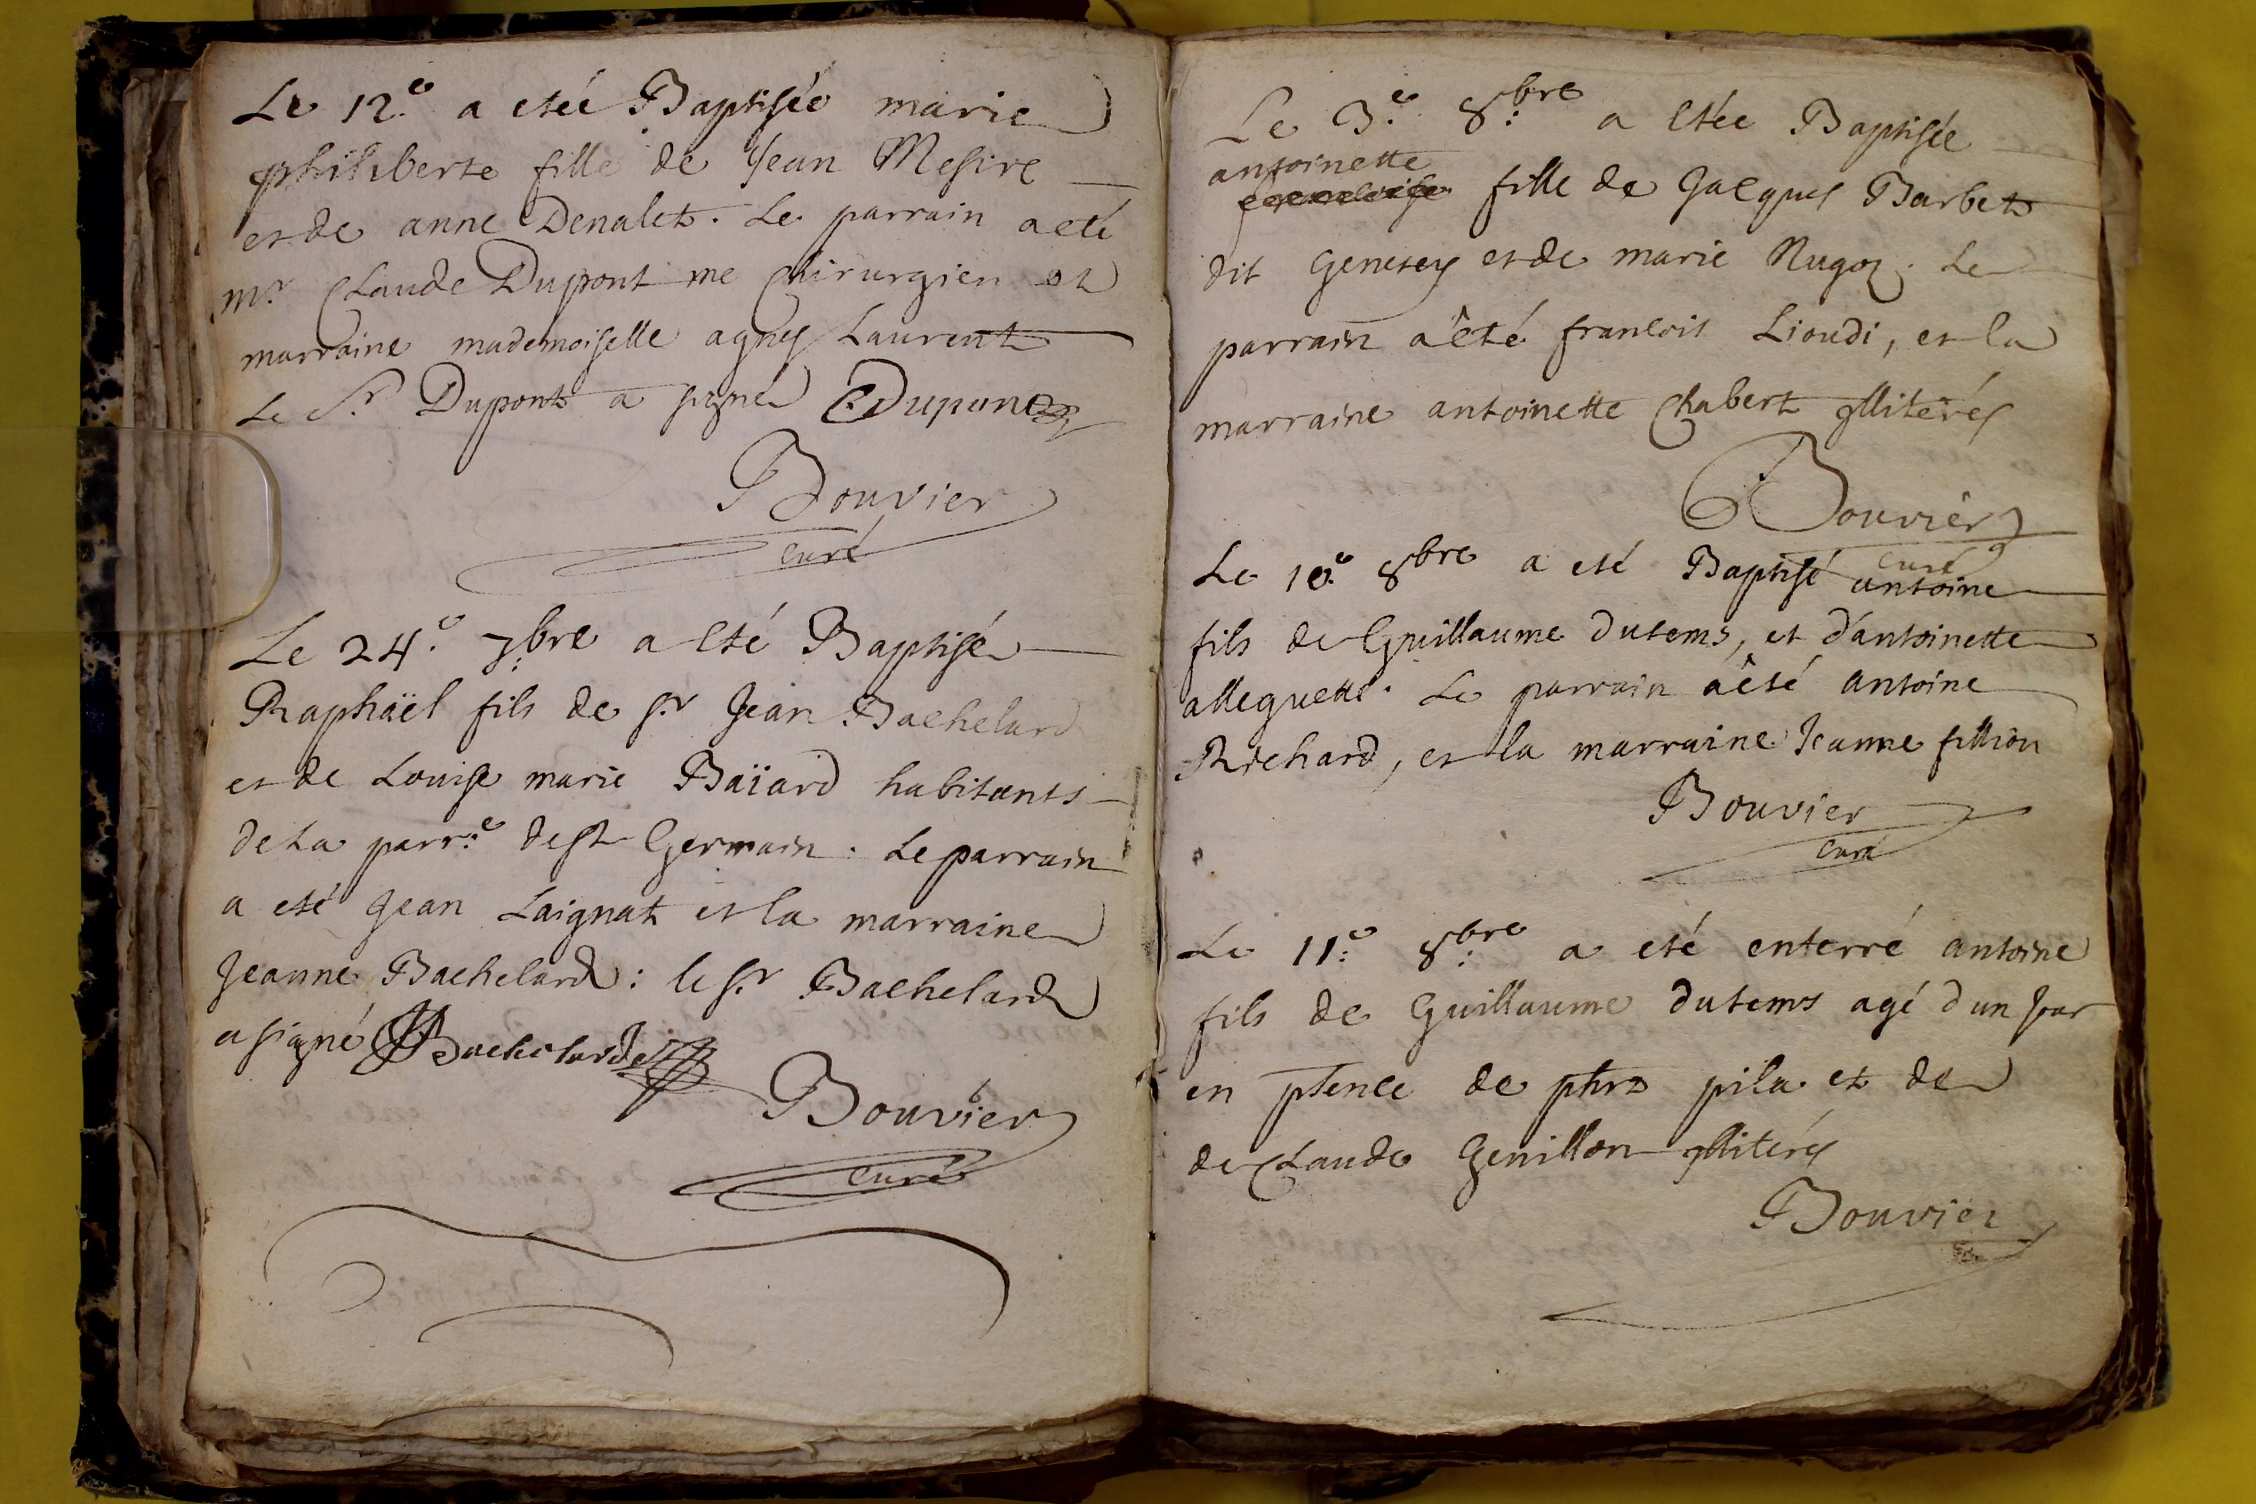 Le 12.e a etée Baptisée marie
philiberte fille de Jean Mesire
et de anne Denalet. Le parrain a eté
mr. Claude Dupont me Chirurgien et
marraine mademoiselle agnes Laurent
Le Sr Dupont a signé CDupont
Bouvier
curé
Le 24.e 7bre a eté Baptisé
Raphaël fils de sr Jean Bachelard
et de Louise marie Baïard habitants
de La parr.e de st Germain. Le parrain
a eté Jean Laignat et la marraine
Jeanne Bachelard: le sr. Bachelard
a signé Bachelard
Bouvier
curé
Le 3.e 8bre a etée Baptisée
antoinette
fille de Jacques Barbet
dit Genetey et de marie Rugoz. Le
parrain a eté francois Lioudi, et la
marraine antoinette Chabert illiterés
Bouvier
curé
Le 10.e 8bre a eté Baptisé antoine
fils de Guillaume dutems, et d'antoinette
alleguette. Le parrain a eté antoine
Richard, et la marraine Jeanne fillion
Bouvier
curé
Le 11.e 8bre a eté enterré antoine
fils de Guillaume dutems agé d'un jour
en pſence de phre pila et de
de Claude Genillon illiterés
Bouvier